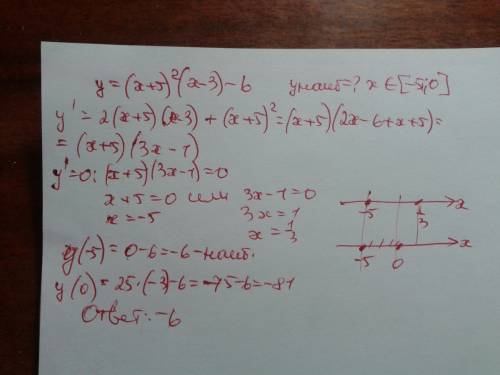 y=(x+5)²(x-3)-6 yнаиб=? x∈[-5;0]
y'=2(x+5)(x-3)+(x+5)²=(x+5)(2x-6+x+5)=
=(x+5)(3x-1)
y'=0: (x+5)(3x-1)=0
x+5=0 или 3x-1=0
x=-5 3x=1
x=1/3
-5 1/3 x
-5 0 x
y(-5)=0-6=-6-наиб.
y(0)=25·(-3)-6=-75-6=-81
Ответ:-6